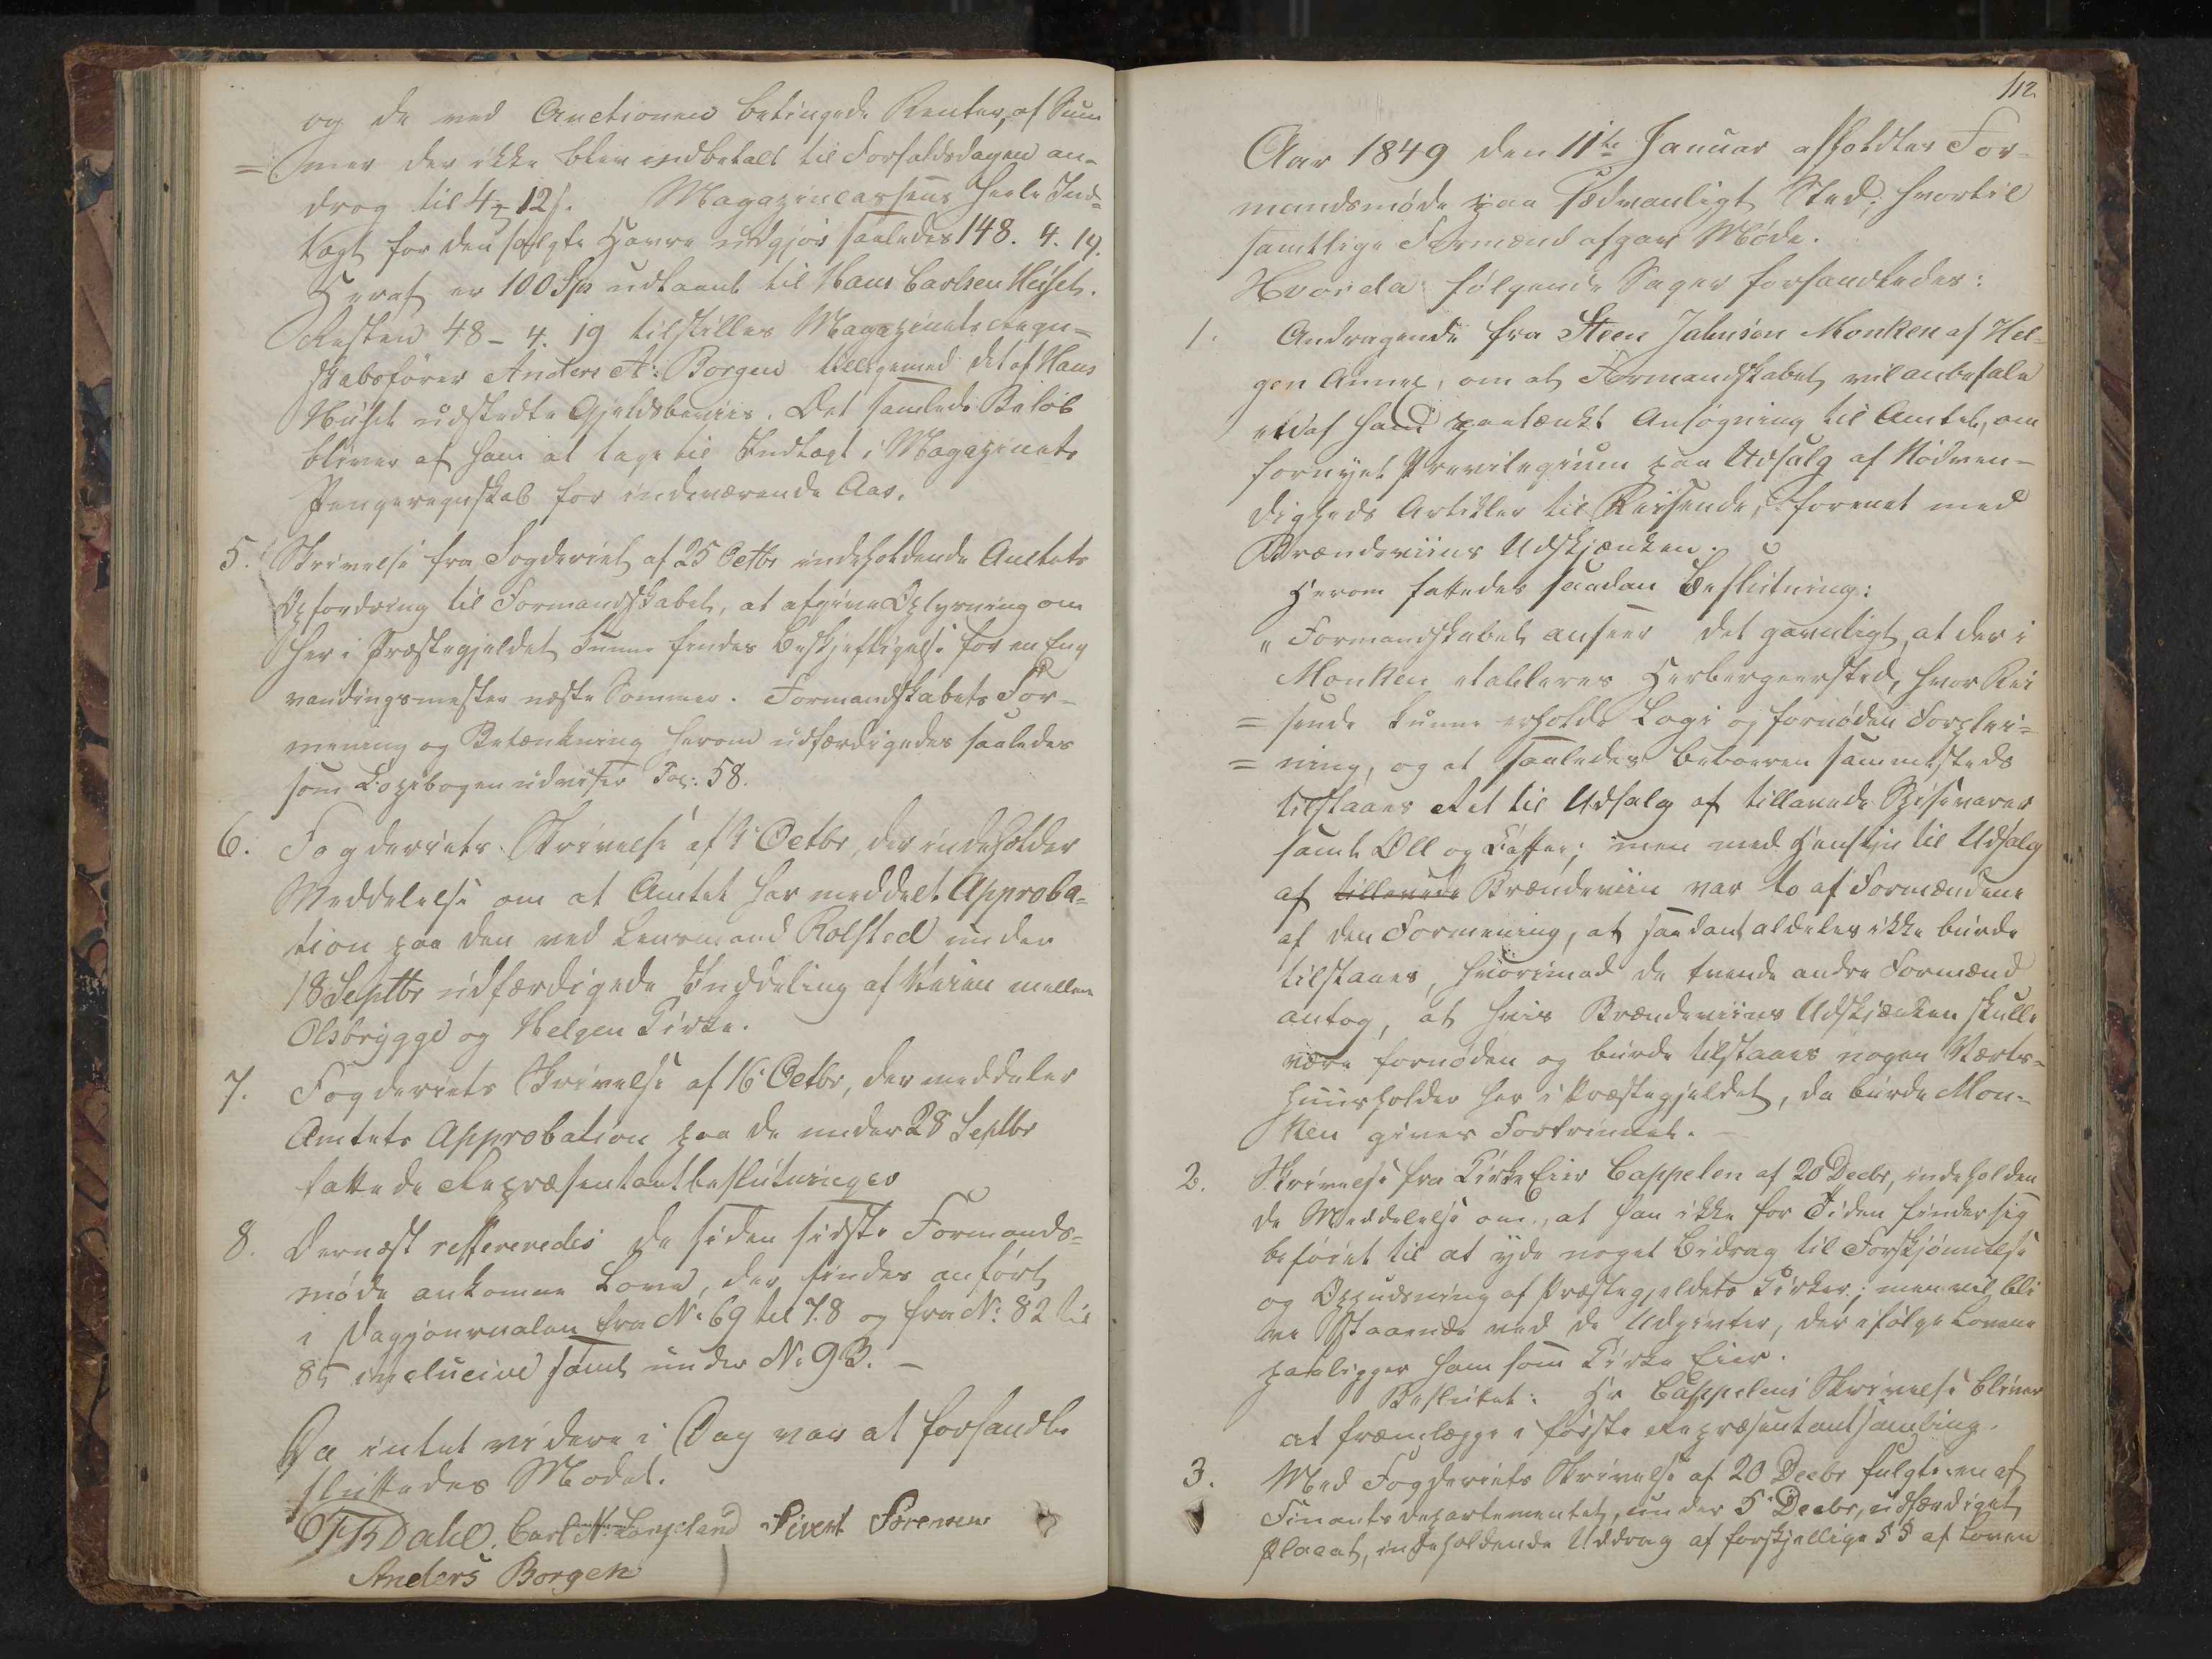 og de ved Auctionen betingede Renter, af Sum
= mer der ikke blev indbetalt til Forfaldsdagen an-
drog til 4 12 s. Magazincassens hele Ind=
tægt for den solgte Havre udgjør saaledes 148. 4. 19.
Heraf er 100 Spd udlaant til Hans Carlsen Huset.
Resten 48 - 4. 19 tilstilles Magazinets Regn=
skabsfører Anders A. Borgen tilligemed det af Hans
Huset udstedte Gjeldsbeviis. Det samlede Beløb
bliver af ham at tage til Indtægt i Magazinets
Pengeregnskab for indeværende Aar.
5. Skrivelse fra Fogderiet af 25 Octbr indeholdende Amtets
Opfordring til Formandskabet, at afgive Oplysning om
her i Præstegjeldet kunne findes Beskjeftigelse for en Eng
vandingsmester næste Sommer. Formandskabets For-
mening og Betænkning herom udfærdigedes saaledes
som Kopibogen udviser Pag: 58.
6. Fogderiets Skrivelse af 4 Octbr, der indeholder
Meddelelse om at Amtet har meddelt Approba=
tion paa den ved Lensmand Rolsted under
18 Septbr udfærdigede Inddeling af Veien mellem
Olsbrygge og Helgen Kirke.
7. Fogderiets Skrivelse af 16 Octbr, der meddeler
Amtets Approbation paa de under 28 Septbr
fattede Repræsentantbeslutninger
8. Dernæst reffereredes de siden sidste Formands=
møde ankomne Love, der findes anført
i Dagjournalen fra No 69 til 78 og fra No 82 til
85 inclucive samt under No 93. —
Da intet videre i Dag var at forhandle
sluttedes Mødet.
Dahl. Carl N. Langeland Sivert Sørensen
Anders Borgen
112
Aar 1849 den 11te Januar afholdtes For-
mandsmøde paa sædvanligt Sted, hvortil
samtlige Formænd afgav Møde.
Hvorda følgende Sager forhandledes:
1. Andragende fra Steen Jahnsen Monken af Hel-
gen Annex, om at Formandskabet vil anbefale
et af ham paatænkt Ansøgning til Amtet, om
fornyet Previlegium paa Udsalg af Nødven-
digheds Artikler til Reisende, forenet med
Brændeviins Udskjænken.
Herom fattedes saadan Beslutning:
" Formandskabet anseer det gavnligt, at der i
Monken etableres Herbergeersted, hvor Rei
= sende kunne erholde Logi og fornøden Forplei=
= ning, og at saaledes Beboeren sammesteds
tilstaaes Ret til Udsalg af tillavede Spisevarer
samt Øll og Caffee; men med Hensyn til Udsalg
af tillavede Brændeviin var to af Formændene
af den Formening, at saadant aldeles ikke burde
tilstaaes, hvorimod de tvende andre Formænd
antog, at hvis Brændeviins Udskjænken skulle
være fornøden og burde tilstaaes nogen Værts-
huusholder her i Præstegjeldet, da burde Mon-
ken gives Fortrinnet. —
2. Skrivelse fra KirkeEier Cappelen af 20 Decbr, indeholden
de Meddelelse om, at han ikke for Tiden finder sig
beføiet til at yde noget Bidrag til Forskjønnelse
og Oppudsning af Præstegjeldets Kirker; men vil bli
ve staaende ved de Udgivter, der ifølge Lovene
paaligger ham som Kirke Eier.
Besluttet: Hr Cappelens Skrivelse bliver
at fremlægge i første Repræsentantsamling.
3. Med Fogderiets Skrivelse af 20 Decbr fulgte en af
Finantsdepartementet, under 5 Decbr, udfærdiget
Placat, indeholdende Uddrag af forskjellige § § af Loven